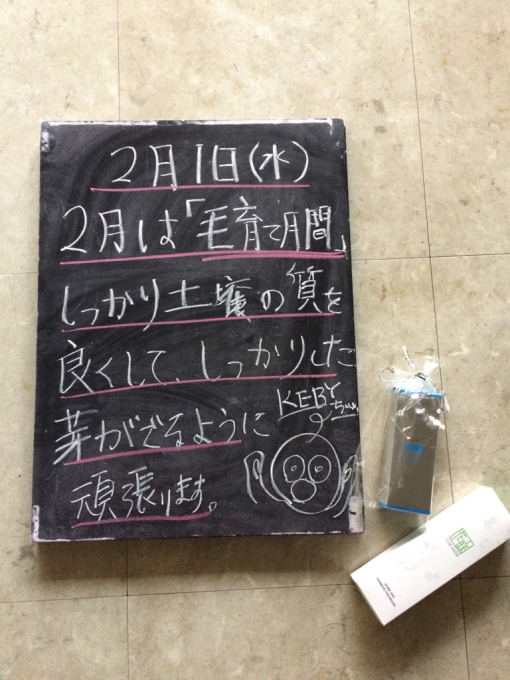 2月1日(水)
2月は「毛育て月間」
しっかり土壌の質を
良くして、しっかりした
芽がでるように
頑張ります。
KEBY